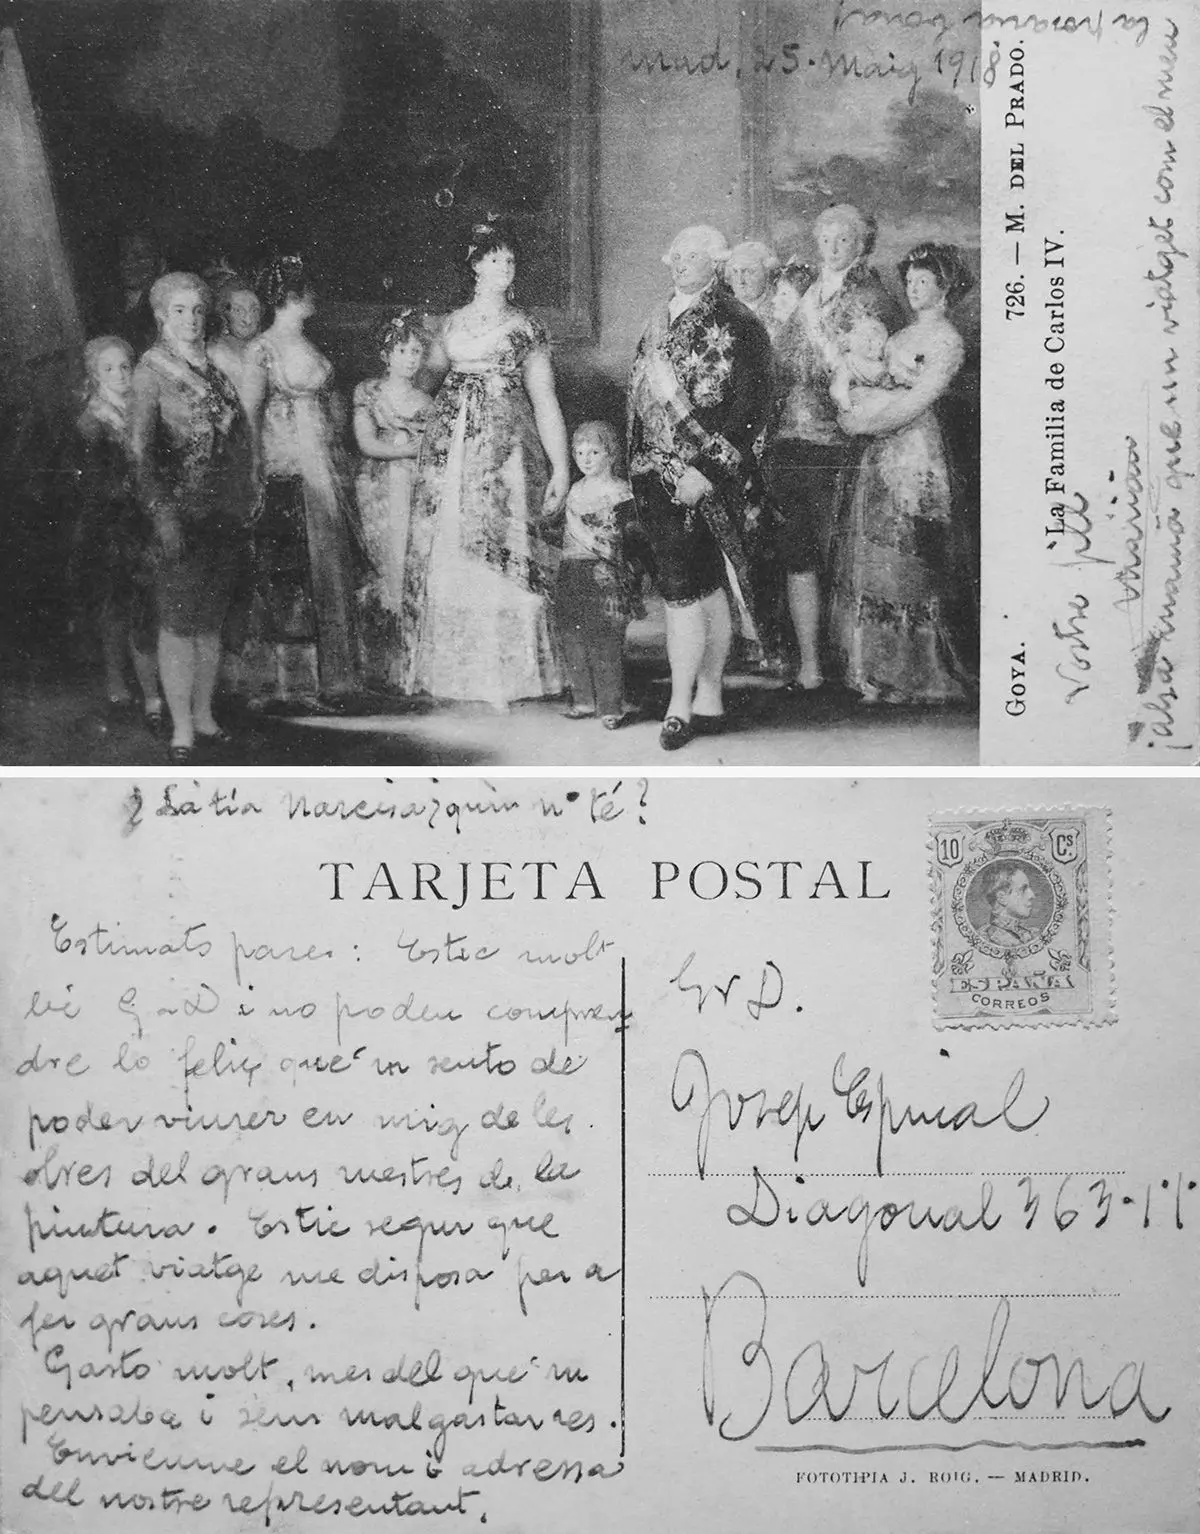 Mad. 25 · Maig 1918.
GOYA. 726. — M. DEL PRADO.
La Familia de Carlos IV.
Vostre fill
Marian
que en viatget com el meu
¿La tia Narcisa, quin nº té?
TARJETA POSTAL
Estimats pares: Estic molt
bé G a D i no podeu compren
dre lo feliç que'm sento de
poder viurer en mig de les
obres del grans mestres de la
pintura. Estic segur que
aquet viatge me disposa per a
fer grans coses.
Gasto molt, mes del que'm
pensaba i sens malgastar res.
Envieume el nom i adressa
del nostre representant.
10 Cs.
ESPAÑA
CORREOS
Sr D.
Josep Espinal
Diagonal 363-1º
Barcelona
FOTOTIPIA J. ROIG. — MADRID.